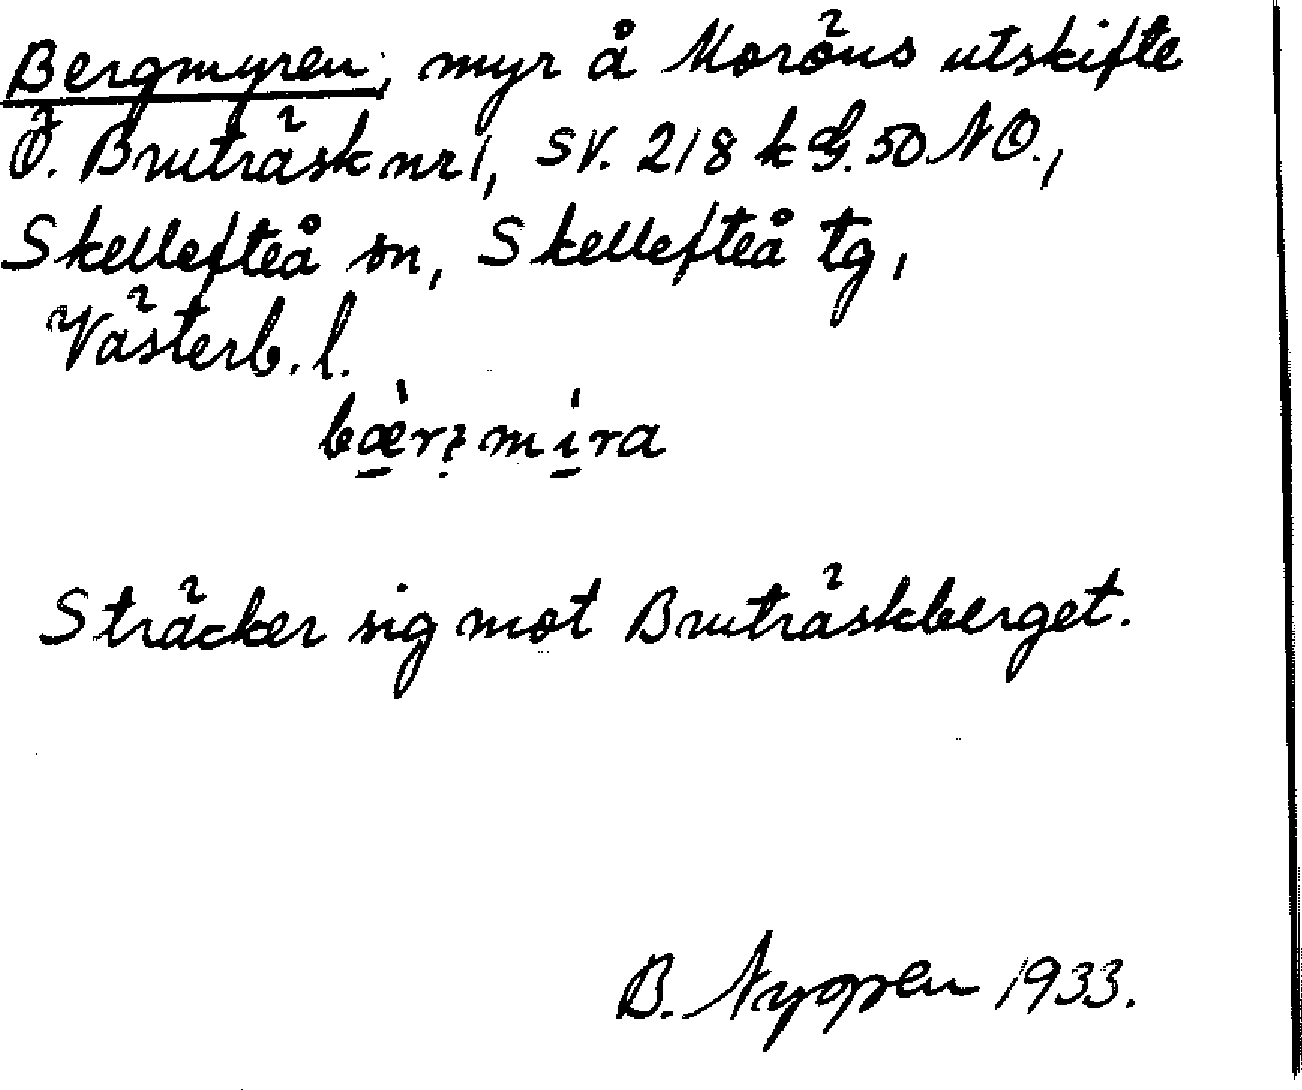 Bergmyren, myr å Moröns utskifte
Ö. Bruträsk nr 1, SV. 218 k G. 50 NO.,
Skellefteå sn, Skellefteå tg,
Västerb. l.
Sträcker sig mot Bruträskberget.
B. Nygren 1933.